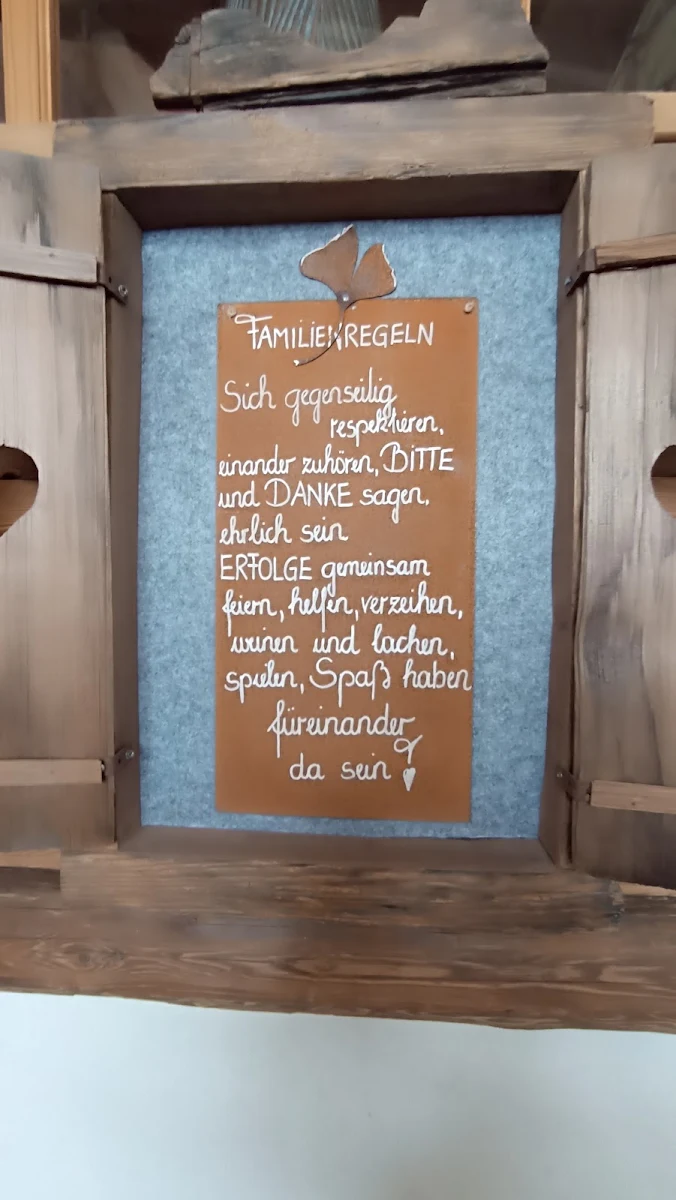 FAMILIENREGELN
Sich gegenseitig
respektieren,
einander zuhören, BITTE
und DANKE sagen,
ehrlich sein
ERFOLGE gemeinsam
feiern, helfen, verzeihen,
weinen und lachen,
spielen, Spaß haben
füreinander
da sein